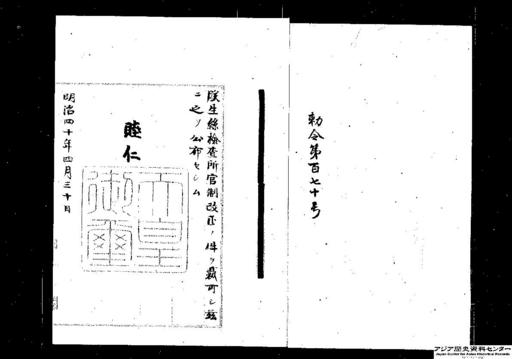 勅令第百七十号
朕生絲検査所官制改正ノ件ヲ裁可シ茲
ニ之ヲ公布セシム
睦仁
天皇
御璽
明治四十年四月三十日
アジア歴史資料センター
Japan Center for Asian Historical Records